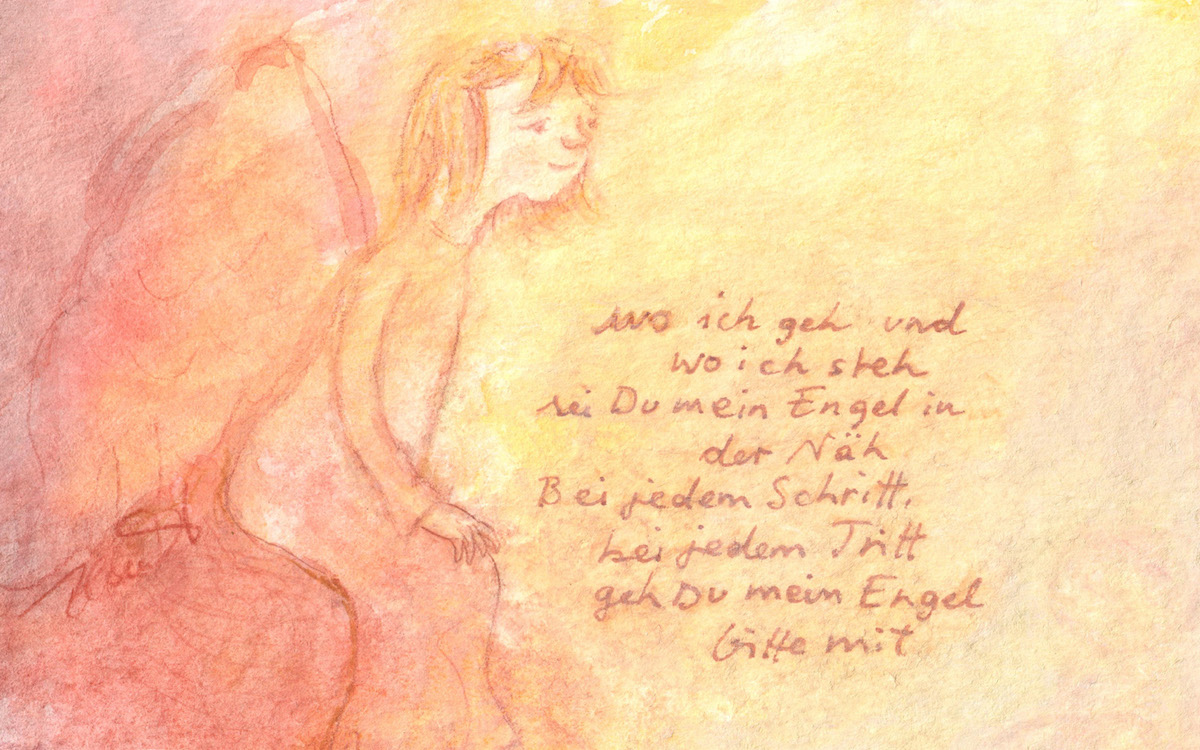 wo ich geh und
wo ich steh
sei Du mein Engel in
der Näh
Bei jedem Schritt,
bei jedem Tritt
geh Du mein Engel
bitte mit